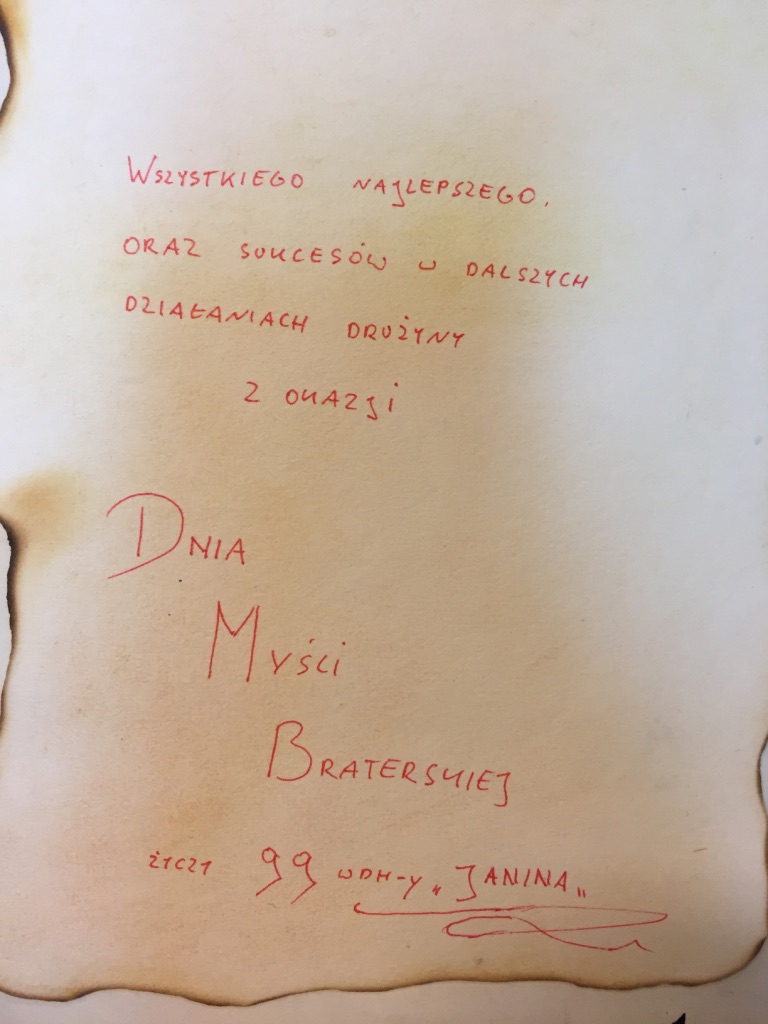 WSZYSTKIEGO NAJLEPSZEGO,
ORAZ SUKCESÓW W DALSZYCH
DZIAŁANIACH DRUŻYNY
Z OKAZJI
DNIA
MYŚCI
BRATERSKIEJ
ŻYCZY 99 WDH-Y „JANINA„